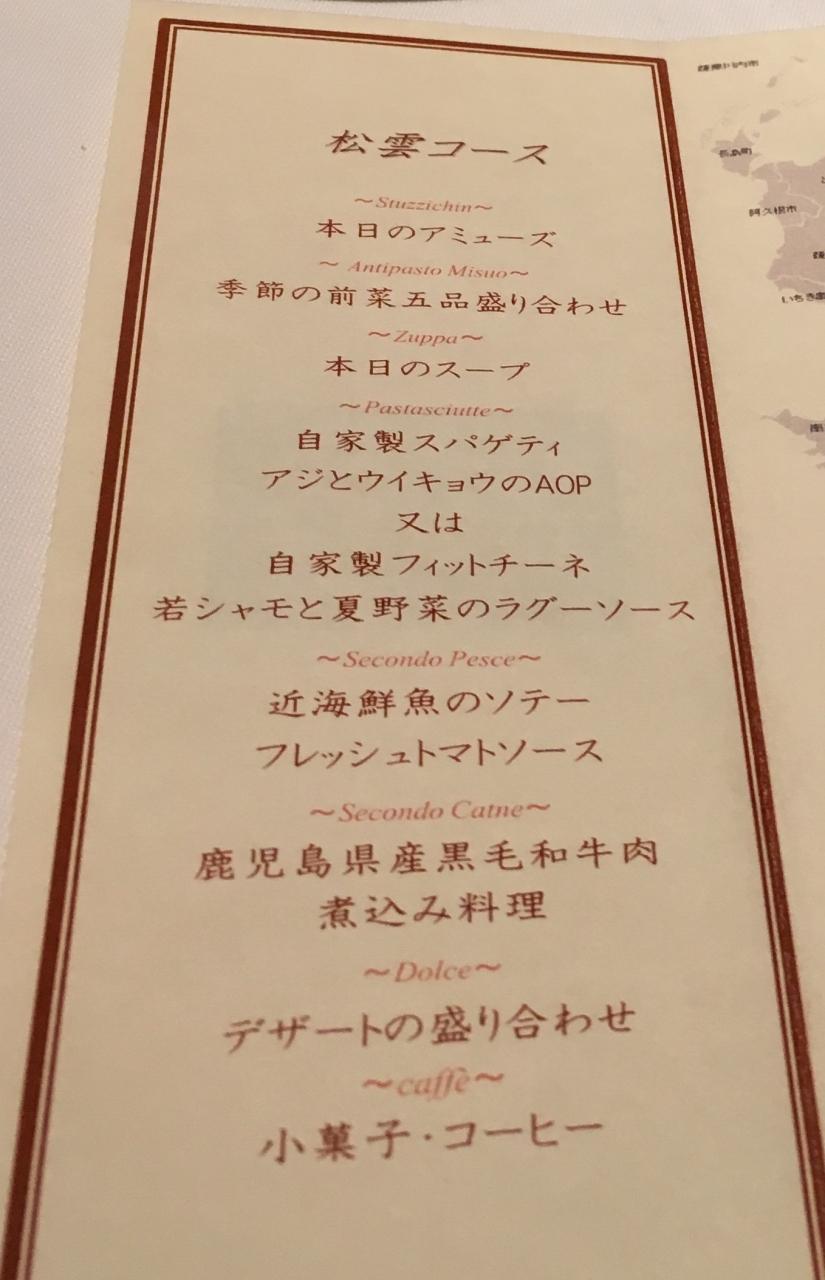 松雲コース
～Stuzzichin～
本日のアミューズ
～ Antipasto Misuo～
季節の前菜五品盛り合わせ
～Zuppa～
本日のスープ
～Pastasciutte～
自家製スパゲティ
アジとウイキョウのAOP
又は
自家製フィットチーネ
若シャモと夏野菜のラグーソース
～Secondo Pesce～
近海鮮魚のソテー
フレッシュトマトソース
～Secondo Catne～
鹿児島県産黒毛和牛肉
煮込み料理
～Dolce～
デザートの盛り合わせ
～caffè～
小菓子・コーヒー
薩摩川内市
長島町
阿久根市